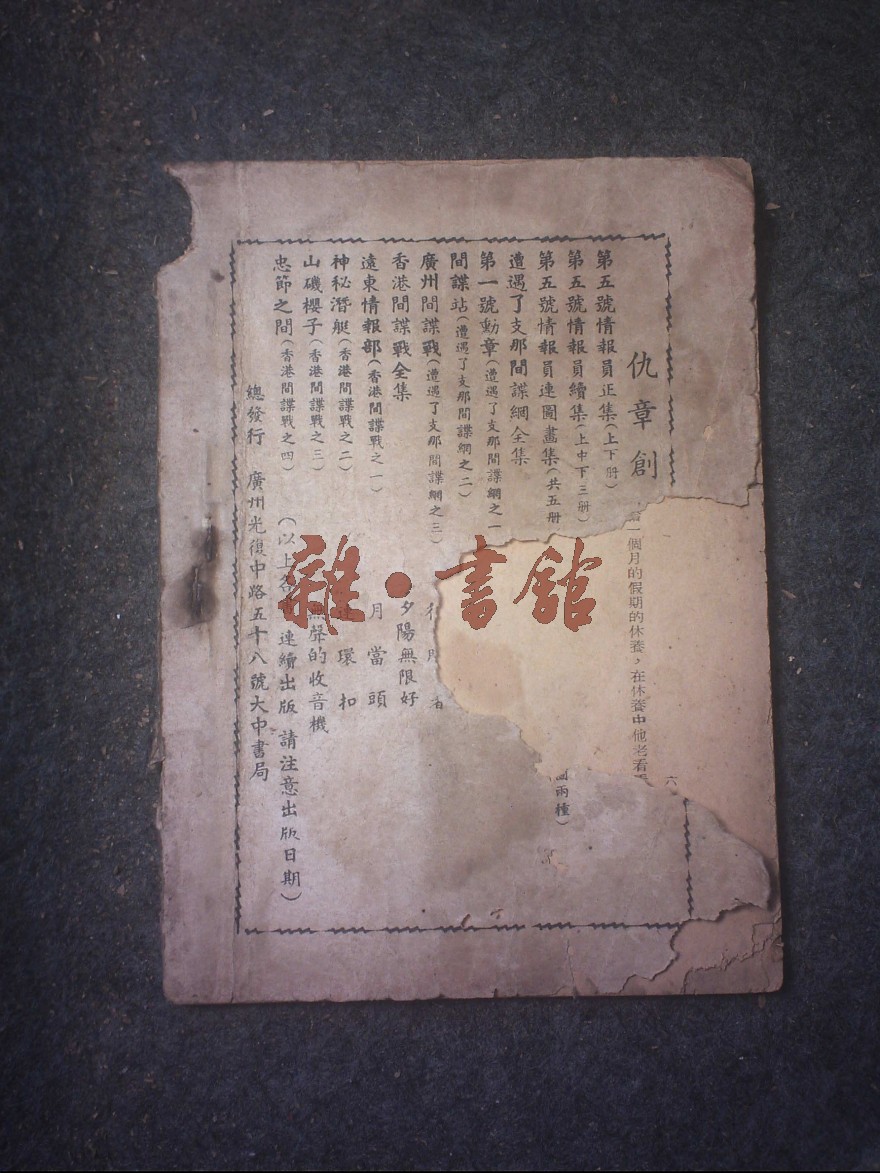 仇章創
第五號情報員正集(上下册)
第五號情報員續集(上中下三册)
第五號情報員連圖畫集(共五册
遭遇了支那間諜網全集
第一號勳章(遭遇了支那間諜網之一
間諜站(遭遇了支那間諜網之二)
廣州間諜戰(遭遇了支那間諜網之三)
香港間諜戰全集 夕陽無限好
遠東情報部(香港間諜戰之一) 月當頭
神秘潛艇(香港間諜戰之二) 環扣
山磯櫻子(香港間諜戰之三) 無聲的收音機
忠節之間(香港間諜戰之四) (以上各 連續出版 請注意出版日期)
總發行 廣州光復中路五十八號大中書局
一個月的假期的休養,在休養中他老看
兩種)
六
雜·書館